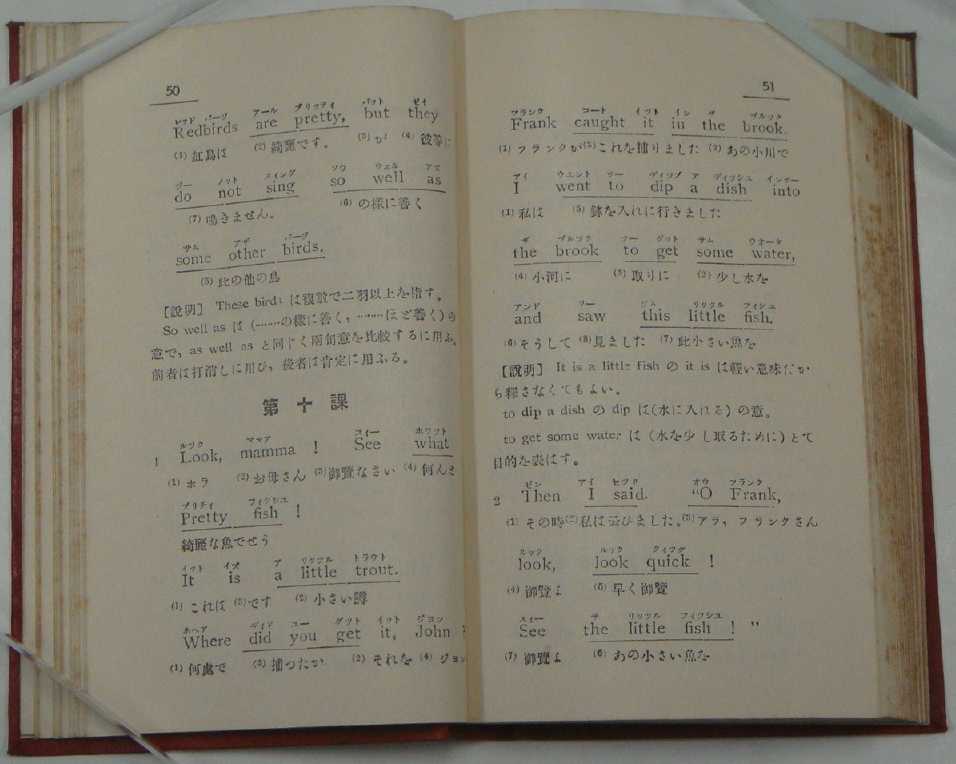 50
レッド バーヅ アール プリッティ バット ゼイ
Redbirds are pretty, but they
(1) 紅鳥は (2) 綺麗です。 (3) が (4) 彼等は
ヅー ノット スィング ソウ ウェル アズ
do not sing so well as
(7) 鳴きません。 (6) の様に善く
サム アザ バーヅ
some other birds.
(5) 此の他の鳥
[説明] These birds は複数で二羽以上を指す。
So well as は (……の様に善く, ……ほど善く) の
意で, as well as と同じく兩句意を比較するに用ふ。
前者は打消しに用ひ, 後者は肯定に用ふる。
第十課
ルック ママア スィー ホワット
1 Look, mamma ! See what
(1) ホラ (2) お母さん (3) 御覽なさい (4) 何んと
プリテイ フィッシユ
Pretty fish !
綺麗な魚でせう
イット イズ ア リッツル トラウト
It is a little trout.
(1) これは (3) です (2) 小さい鱒
ホヘア ディド ユー ゲット イット ジョン
Where did you get it, John ?
(1) 何處で (3) 捕つたか (2) それを (4) ジョン
51
フランク コート イット イン ザ ブルック
Frank caught it in the brook.
(1) フランクが (3) これを捕りました (2) あの小川で
アイ ウエント ツー ディップ ア ディッシユ インツー
I went to dip a dish into
(1) 私は (5) 鉢を入れに行きました
ザ ブルック ツー ゲット サム ウオータ
the brook to get some water,
(4) 小河に (3) 取りに (2) 少し水を
アンド ソー ジス リツクル フィシユ
and saw this little fish.
(6) そうして (8) 見ました (7) 此小さい魚を
[説明] It is a little fish の it is は輕い意味だか
ら釋さなくてもよい。
to dip a dish の dip は (水に入れる) の意。
to get some water は (水を少し取るために) とて
目的を表はす。
ゼン アイ セッド オウ フランク
2 Then I said. "O Frank,
(1) その時 (2) 私は云ひました。 (3) アラ, フランクさん
ルック ルック クイック
look, look quick !
(4) 御覽よ (5) 早く御覽
スィー ザ リッツル フィッシユ
See the little fish ! "
(7) 御覽よ (6) あの小さい魚を